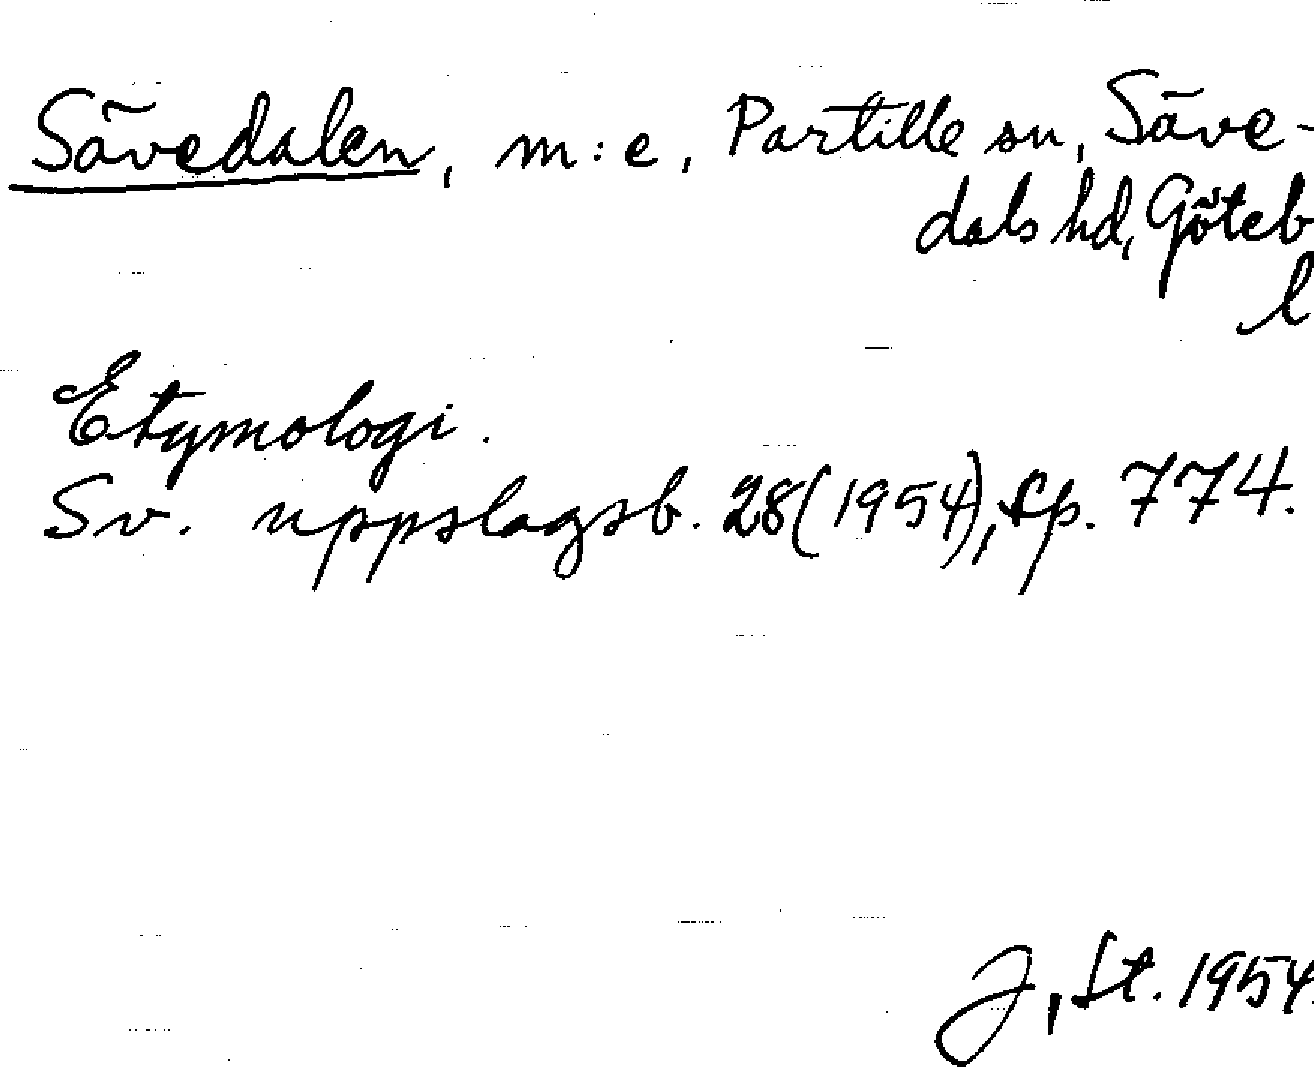 Sävedalen, m:e, Partille sn, Säve-
dals hd, Göteb
l
Etymologi.
Sv. uppslagsb. 28(1954), sp. 774.
J, St. 1954.